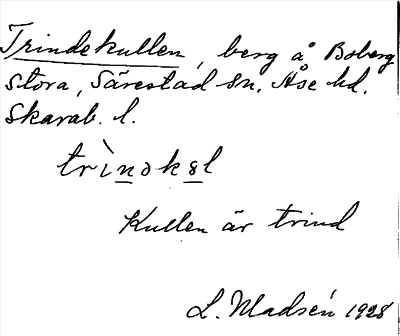 Trindekullen, berg å Boberg
Stora, Särestad sn, Åse hd.
Skarab. l.
trìnɔksl
Kullen är trind
L. Madsén 1928